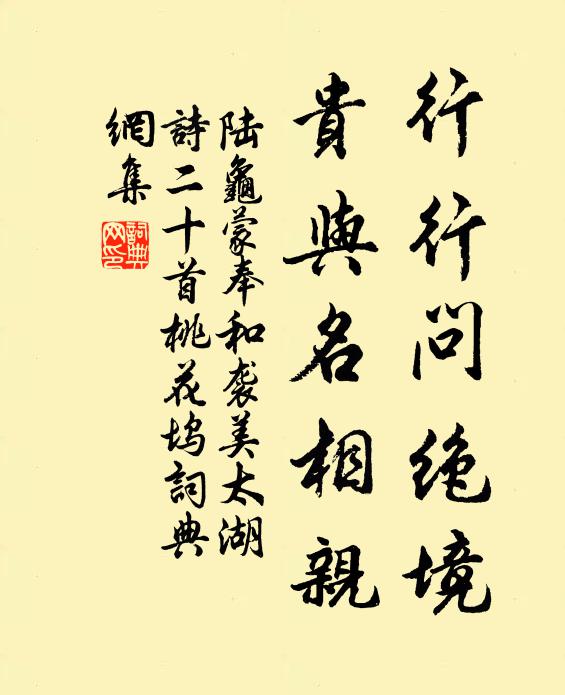 行行問絶境
貴與名相親
陆龜蒙奉和袭美太湖
詩二十首桃花坞詞典
網集
詞典网印